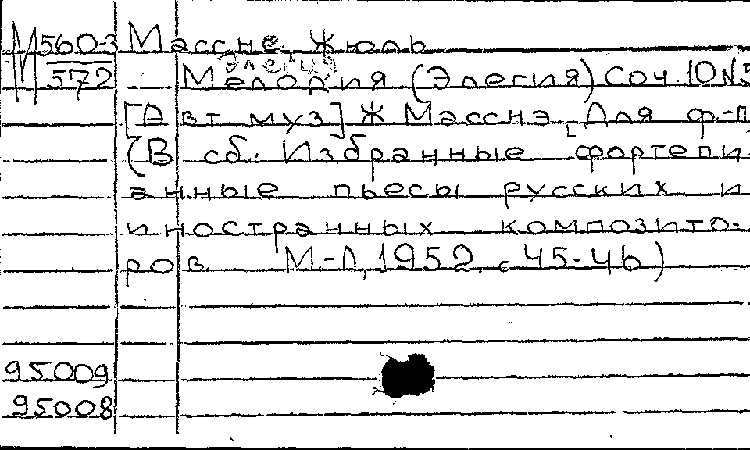 М5603 Массне Жюль
Элегия
М 572 Мелодия (Элегия) Соч. 10 №5
[Авт муз] Ж Массне [Для ф-п
(В сб. Избранные фортепи
анные пьесы русских и
иностранных композито-
ров М.-Л, 1952, с 45-46)
95009
95008